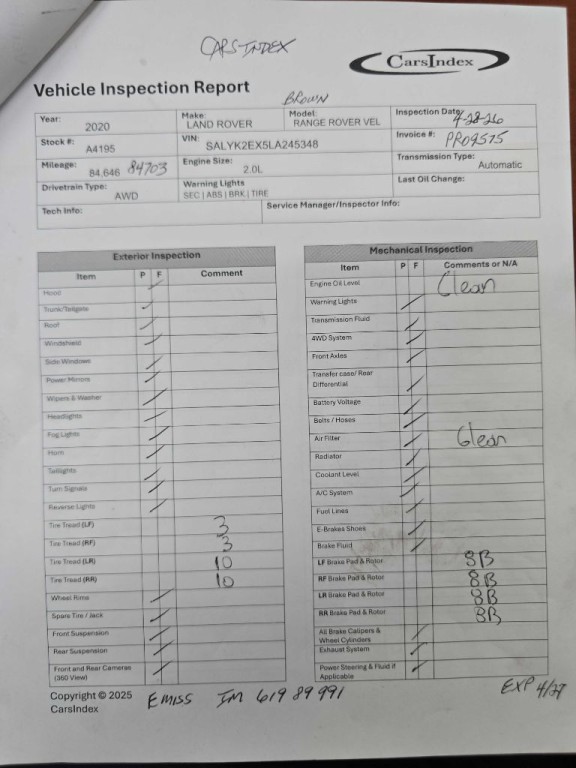 CARS-INDEX
CarsIndex
Vehicle Inspection Report
BROWN
Year: 2020 Make: LAND ROVER Model: RANGE ROVER VEL Inspection Date: 4-28-26
Stock #: A4195 VIN: SALYK2EX5LA245348 Invoice #: PRO9575
Mileage: 84,646 84703 Engine Size: 2.0L Transmission Type: Automatic
Drivetrain Type: AWD Warning Lights SEC | ABS | BRK | TIRE Last Oil Change:
Tech Info: Service Manager/Inspector Info:
Exterior Inspection
Item P F Comment
Hood
Trunk/Tailgate
Roof
Windshield
Side Windows
Power Mirrors
Wipers & Washer
Headlights
Fog Lights
Horn
Taillights
Turn Signals
Reverse Lights
Tire Tread (LF) 3
Tire Tread (RF) 3
Tire Tread (LR) 10
Tire Tread (RR) 10
Wheel Rims
Spare Tire / Jack
Front Suspension
Rear Suspension
Front and Rear Cameras
(360 View)
Mechanical Inspection
Item P F Comments or N/A
Engine Oil Level Clean
Warning Lights
Transmission Fluid
4WD System
Front Axles
Transfer case/ Rear
Differential
Battery Voltage
Belts / Hoses
Air Filter Clean
Radiator
Coolant Level
A/C System
Fuel Lines
E-Brakes Shoes
Brake Fluid
LF Brake Pad & Rotor 8B
RF Brake Pad & Rotor 8B
LR Brake Pad & Rotor 8B
RR Brake Pad & Rotor 8B
All Brake Calipers &
Wheel Cylinders
Exhaust System
Power Steering & Fluid if
Applicable
Copyright © 2025
CarsIndex
EMISS IM 61989991 EXP 4/27